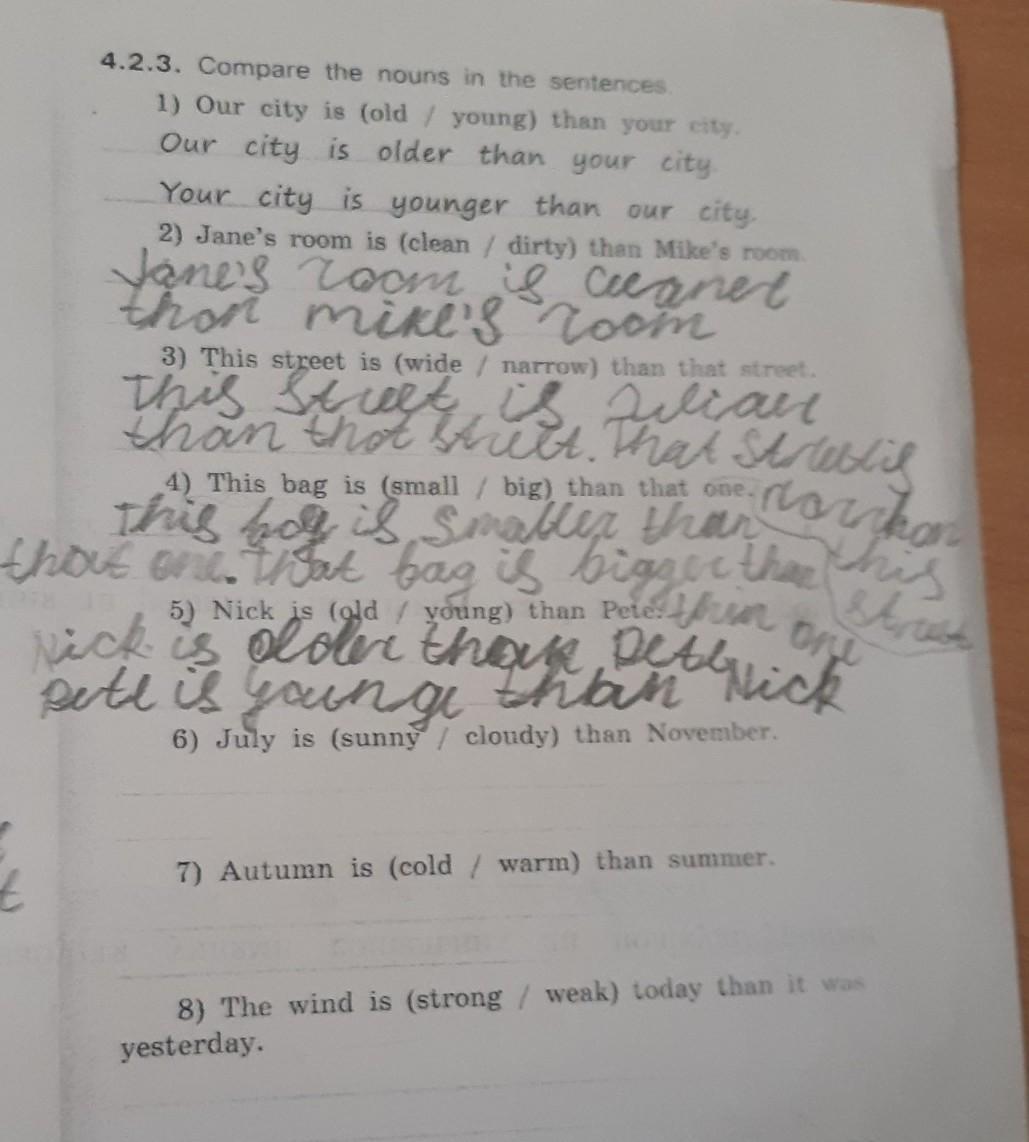 4.2.3. Compare the nouns in the sentences.
1) Our city is (old / young) than your city.
Our city is older than your city.
Your city is younger than our city.
2) Jane's room is (clean / dirty) than Mike's room.
Jane's room is
than mike's room
3) This street is (wide / narrow) than that street.
This street is
than that street. That
4) This bag is (small / big) than that one.
This bag is smaller than
that one. That bag is bigger than this
street
5) Nick is (old / young) than Pete.
one
Nick is older than Pete
Pete is than Nick
6) July is (sunny / cloudy) than November.
7) Autumn is (cold / warm) than summer.
t
8) The wind is (strong / weak) today than it was
yesterday.